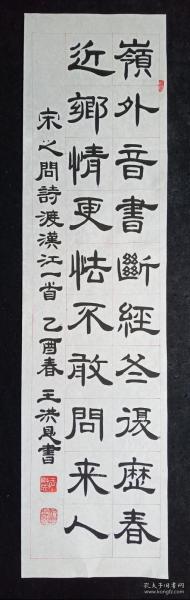 嶺外音書斷經冬復歷春
近鄉情更怯不敢問来人
宋之問詩渡漢江一首 乙酉春 王洪恩書
孔夫子旧书网